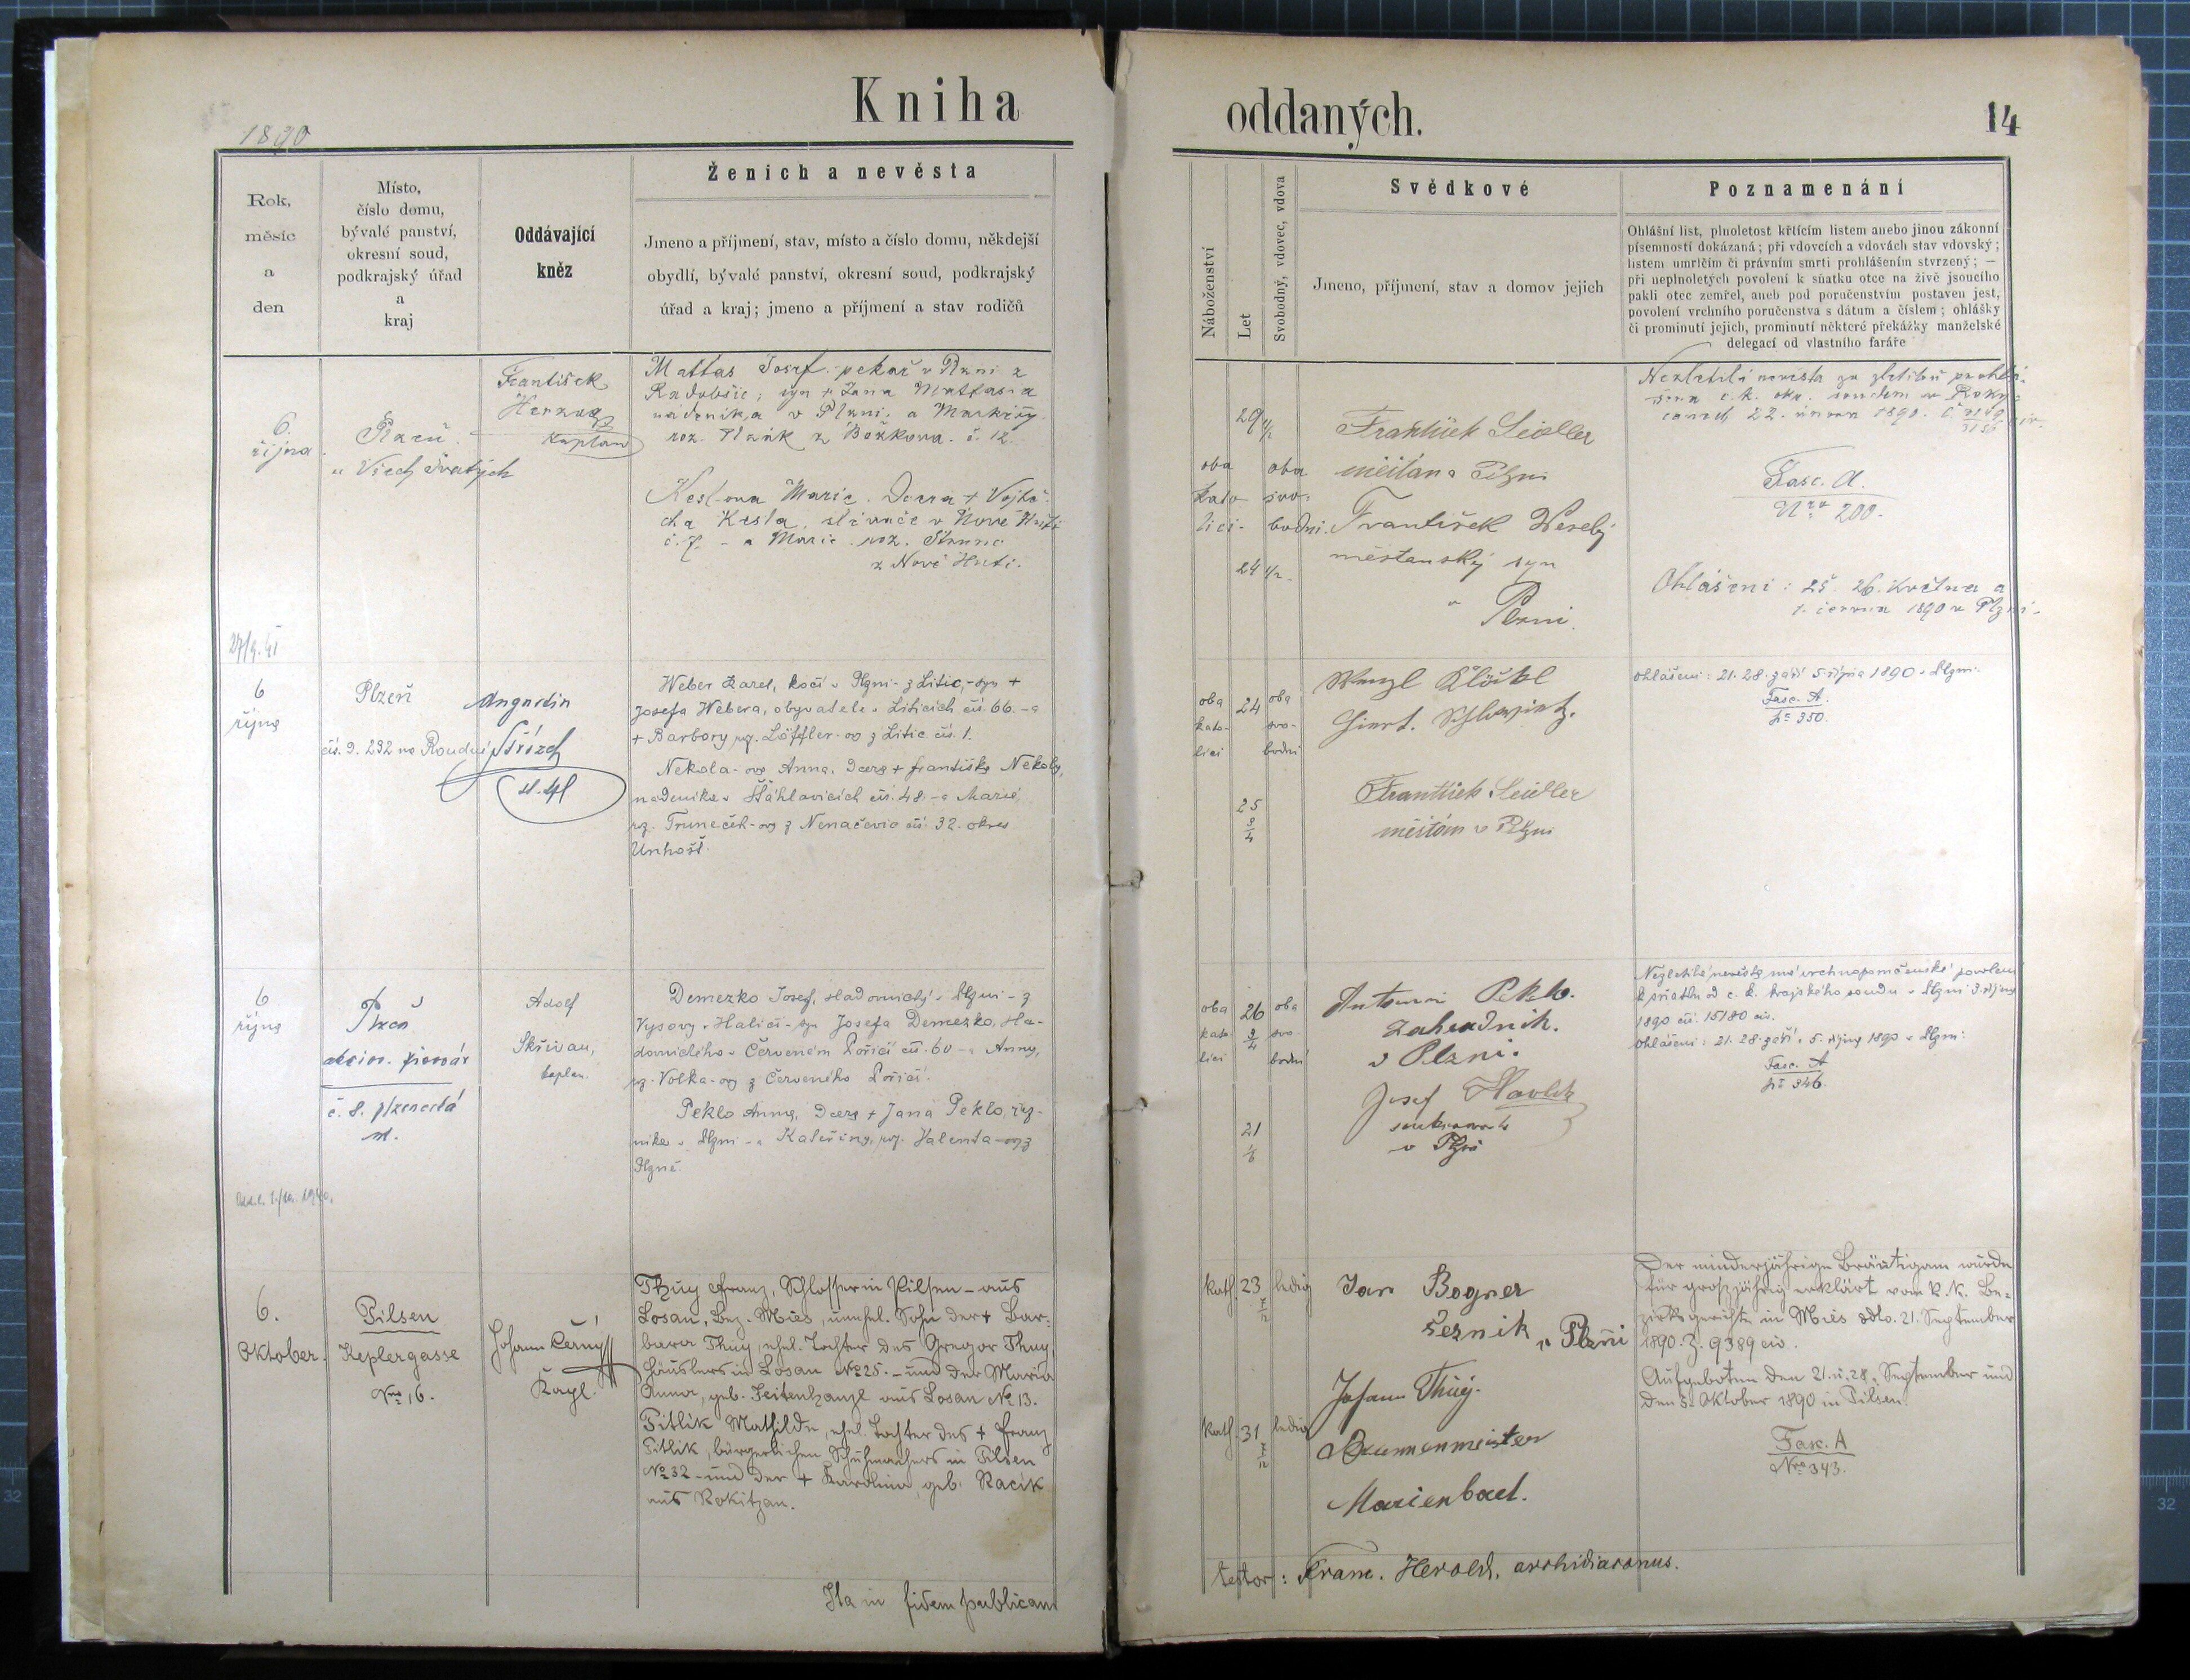 Kniha
1890
Rok,
měsíc
a
den
Místo,
číslo domu,
bývalé panství,
okresní soud,
podkrajský úřad
a
kraj
Oddávající
kněz
Ženich a nevěsta
Jmeno a příjmení, stav, místo a číslo domu, někdejší
obydlí, bývalé panství, okresní soud, podkrajský
úřad a kraj; jmeno a příjmení a stav rodičů
6.
října
Plzeň
u Všech Svatých
František
Herzog
Kaplan
Mattas Josef pekař v Plzni z
Radobšic, syn + Jana Mattasa
nádeníka v Plzni, a Markéty
roz. Plzák z Božkova č. 12.
Keslova Marie. Dcera + Vojtě-
cha Kesla, slévače v Nové Huti
č. 7. - a Marie roz.
z Nové Huti.
27/9. 41
6
října
Plzeň
čís. d. 232 na Roudné
Augustin
Weber Karel, kočí v Plzni - z Litic, - syn +
Josefa Webera, obyvatele v Liticích čís. 66. - a
+ Barbory roz. Löffler-ov z Litic čís. 1.
Nekola-ova Anna, dcera + Františka Nekoly,
nádeníka v Štáhlavicích čís. 48. - a Marie,
roz. Truneček-ov z Nenačovic čís. 32. okres
Unhošť.
6
října
Plzeň
akcion. pivovár
č. 8. plzenecká
Adolf
Skřivan,
kaplan.
Demezko Josef, sladovnický v Plzni - z
Vysovy v Haliči - syn Josefa Demezko, sla-
dovnického v Červeném Poříčí čís. 60 - a Anny,
roz. Volka-ov z Červeného Poříčí.
Peklo Anna, dcera + Jana Peklo, řez-
níka v Plzni - a Kateřiny, roz. Valenta-ov z
Plzně.
6.
Oktober.
Pilsen
Keplergasse
Nro 16.
Johann Černý
Kapl.
Thuy Franz, Schlosser in Pilsen - aus
Losan, Bez. Mies, unehel. Sohn der + Bar-
bara Thuy, ehel. Tochter des Gregor Thuy,
Häuslers in Losan No 25. - und der Maria
Anna, geb. Seitenhanzl aus Losan No 13.
Pitlik Mathilde, ehel. Tochter des + Franz
Pitlik, bürgerlichen Schuhmachers in Pilsen
No 32 - und der + Karolina, geb. Racik
aus Rokitzan.
Ita in fidem publicam
oddaných.
14
Náboženství
Let
Svobodný, vdovec, vdova
Svědkové
Jmeno, příjmení, stav a domov jejich
Poznamenání
Ohlášní list, plnoletost křticím listem anebo jinou zákonní
písemností dokázaná; při vdovcích a vdovách stav vdovský;
listem úmrtčím či právním smrti prohlášením stvrzený; —
při neplnoletých povolení k sňatku otce na živě jsoucího
pakli otec zemřel, aneb pod poručenstvím postaven jest,
povolení vrchního poručenstva s dátum a číslem; ohlášky
či prominutí jejich, prominutí některé překážky manželské
delegací od vlastního faráře
oba
kato-
lici.
29
24 1/2
oba
svo-
bodni.
František Seidler
měšťan v Plzni
František Weselý
městanský syn
v
Plzni.
Nezletilá nevěsta za zletilou prohlá-
šena c. k. okr. soudem v Roky-
canech 22. února 1890. č.
Fasc. A.
Nro 200.
Ohlášeni: 25. 26. Května a
1. června 1890 v Plzni.
oba
kato-
lici
24
25
3
4
oba
svo-
bodni
Wenzl
František Seidler
měšťan v Plzni
ohlášeni: 21. 28. září 5. října 1890 v Plzni.
Fasc. A.
No 350.
oba
kato-
lici
26
3
4
21
1
6
oba
svo-
bodni
Antonín Peklo.
zahradník.
v Plzni.
Josef Havlík
v Plzni
Nezletilá nevěsta má vrchnoporučenské povolení
k sňatku od c. k. krajského soudu v Plzni 3. října
1890 čís. 15180 civ.
ohlášeni: 21. 28. září, 5. října 1890 v Plzni.
Fasc. A
No 346.
Kath.
23
7
12
ledig
Kath.
31
7
12
ledig
Jan Bogner
řezník v Plzni
Johann Thuy.
Brunnenmeister
Marienbad.
Der minderjährige Bräutigam wurde
für grossjährig erklärt vom k. k. Be-
zirksgerichte in Mies ddto. 21. September
1890. Z. 9389 civ.
Aufgeboten den 21. u. 28. September und
den 5. Oktober 1890 in Pilsen.
Fasc. A
Nro 343.
testor: Franc. Herold, archidiaconus.